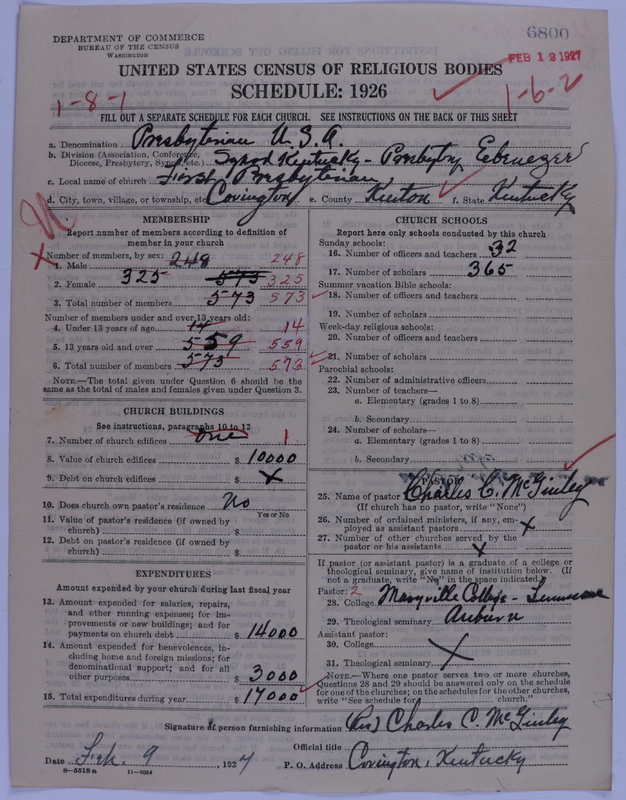 6800
DEPARTMENT OF COMMERCE
BUREAU OF THE CENSUS
WASHINGTON
FEB 12 1927
UNITED STATES CENSUS OF RELIGIOUS BODIES
SCHEDULE: 1926
1-8-1
1-6-2
FILL OUT A SEPARATE SCHEDULE FOR EACH CHURCH. SEE INSTRUCTIONS ON THE BACK OF THIS SHEET
a. Denomination Presbyterian U.S.A.
b. Division (Association, Conference, Diocese, Presbytery, Synod, etc.) Synod Kentucky - Presbytry Ebenezer
c. Local name of church First Presbyterian
d. City, town, village, or township, etc Covington e. County Kenton f. State Kentucky
MEMBERSHIP
Report number of members according to definition of
member in your church
Number of members, by sex:
1. Male 248 248
2. Female 325 573 325
3. Total number of members 573 573
Number of members under and over 13 years old:
4. Under 13 years of age 14 14
5. 13 years old and over 559 559
6. Total number of members 573 573
NOTE.—The total given under Question 6 should be the
same as the total of males and females given under Question 3.
CHURCH BUILDINGS
See instructions, paragraphs 10 to 12
7. Number of church edifices one 1
8. Value of church edifices $ 10000
9. Debt on church edifices $ X
10. Does church own pastor's residence No
Yes or No
11. Value of pastor's residence (if owned by
church) $
12. Debt on pastor's residence (if owned by
church) $
EXPENDITURES
Amount expended by your church during last fiscal year
13. Amount expended for salaries, repairs,
and other running expenses; for im-
provements or new buildings; and for
payments on church debt $ 14000
14. Amount expended for benevolences, in-
cluding home and foreign missions; for
denominational support; and for all
other purposes $ 3000
15. Total expenditures during year $ 17000
CHURCH SCHOOLS
Report here only schools conducted by this church
Sunday schools:
16. Number of officers and teachers 32
17. Number of scholars 365
Summer vacation Bible schools:
18. Number of officers and teachers
19. Number of scholars
Week-day religious schools:
20. Number of officers and teachers
21. Number of scholars
Parochial schools:
22. Number of administrative officers
23. Number of teachers—
a. Elementary (grades 1 to 8)
b. Secondary
24. Number of scholars—
a. Elementary (grades 1 to 8)
b. Secondary
PASTOR
25. Name of pastor Charles C. McGinley
(If church has no pastor, write "None")
26. Number of ordained ministers, if any, em-
ployed as assistant pastors X
27. Number of other churches served by the
pastor or his assistants X
If pastor (or assistant pastor) is a graduate of a college or
theological seminary, give name of institution below. (If
not a graduate, write "No" in the space indicated)
Pastor: 2
28. College Maryville College - Tennessee
29. Theological seminary Auburn
Assistant pastor:
30. College X
31. Theological seminary
NOTE.—Where one pastor serves two or more churches,
Questions 28 and 29 should be answered only on the schedule
for one of the churches; on the schedules for the other churches,
write "See schedule for church."
Signature of person furnishing information (Rev) Charles C. McGinley
Official title
Date Feb. 9, 1927 P. O. Address Covington, Kentucky
8-5518a 11-9054